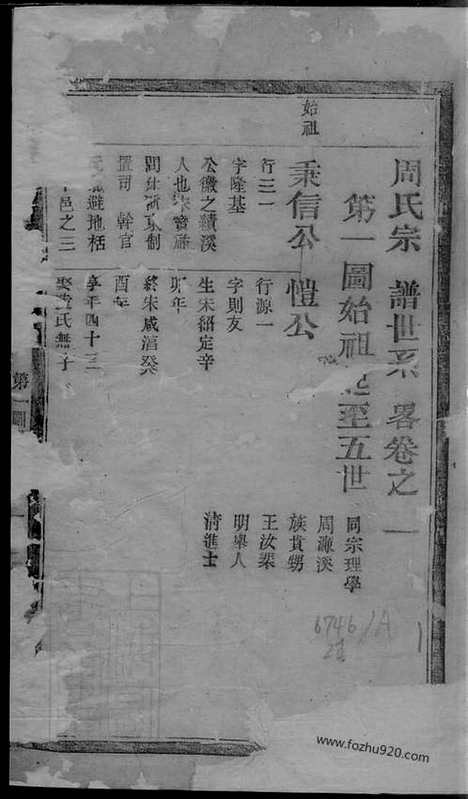 周氏宗譜世系畧卷之一
第一圖始祖起至五世
同宗理學
周濂溪
族貢甥
王汝舉
明舉人
清進士
始祖
秉信公
行三一
字隆基
公徽之績溪
人也宋寶祐
間仕浙東制
置司幹官
避地栝
邑之三
愷公
行源一
字則友
生宋紹定辛
卯年
終宋咸淳癸
酉年
享年四十三
氏無子
第一圖
6746/A
1
www.fozhu920.com